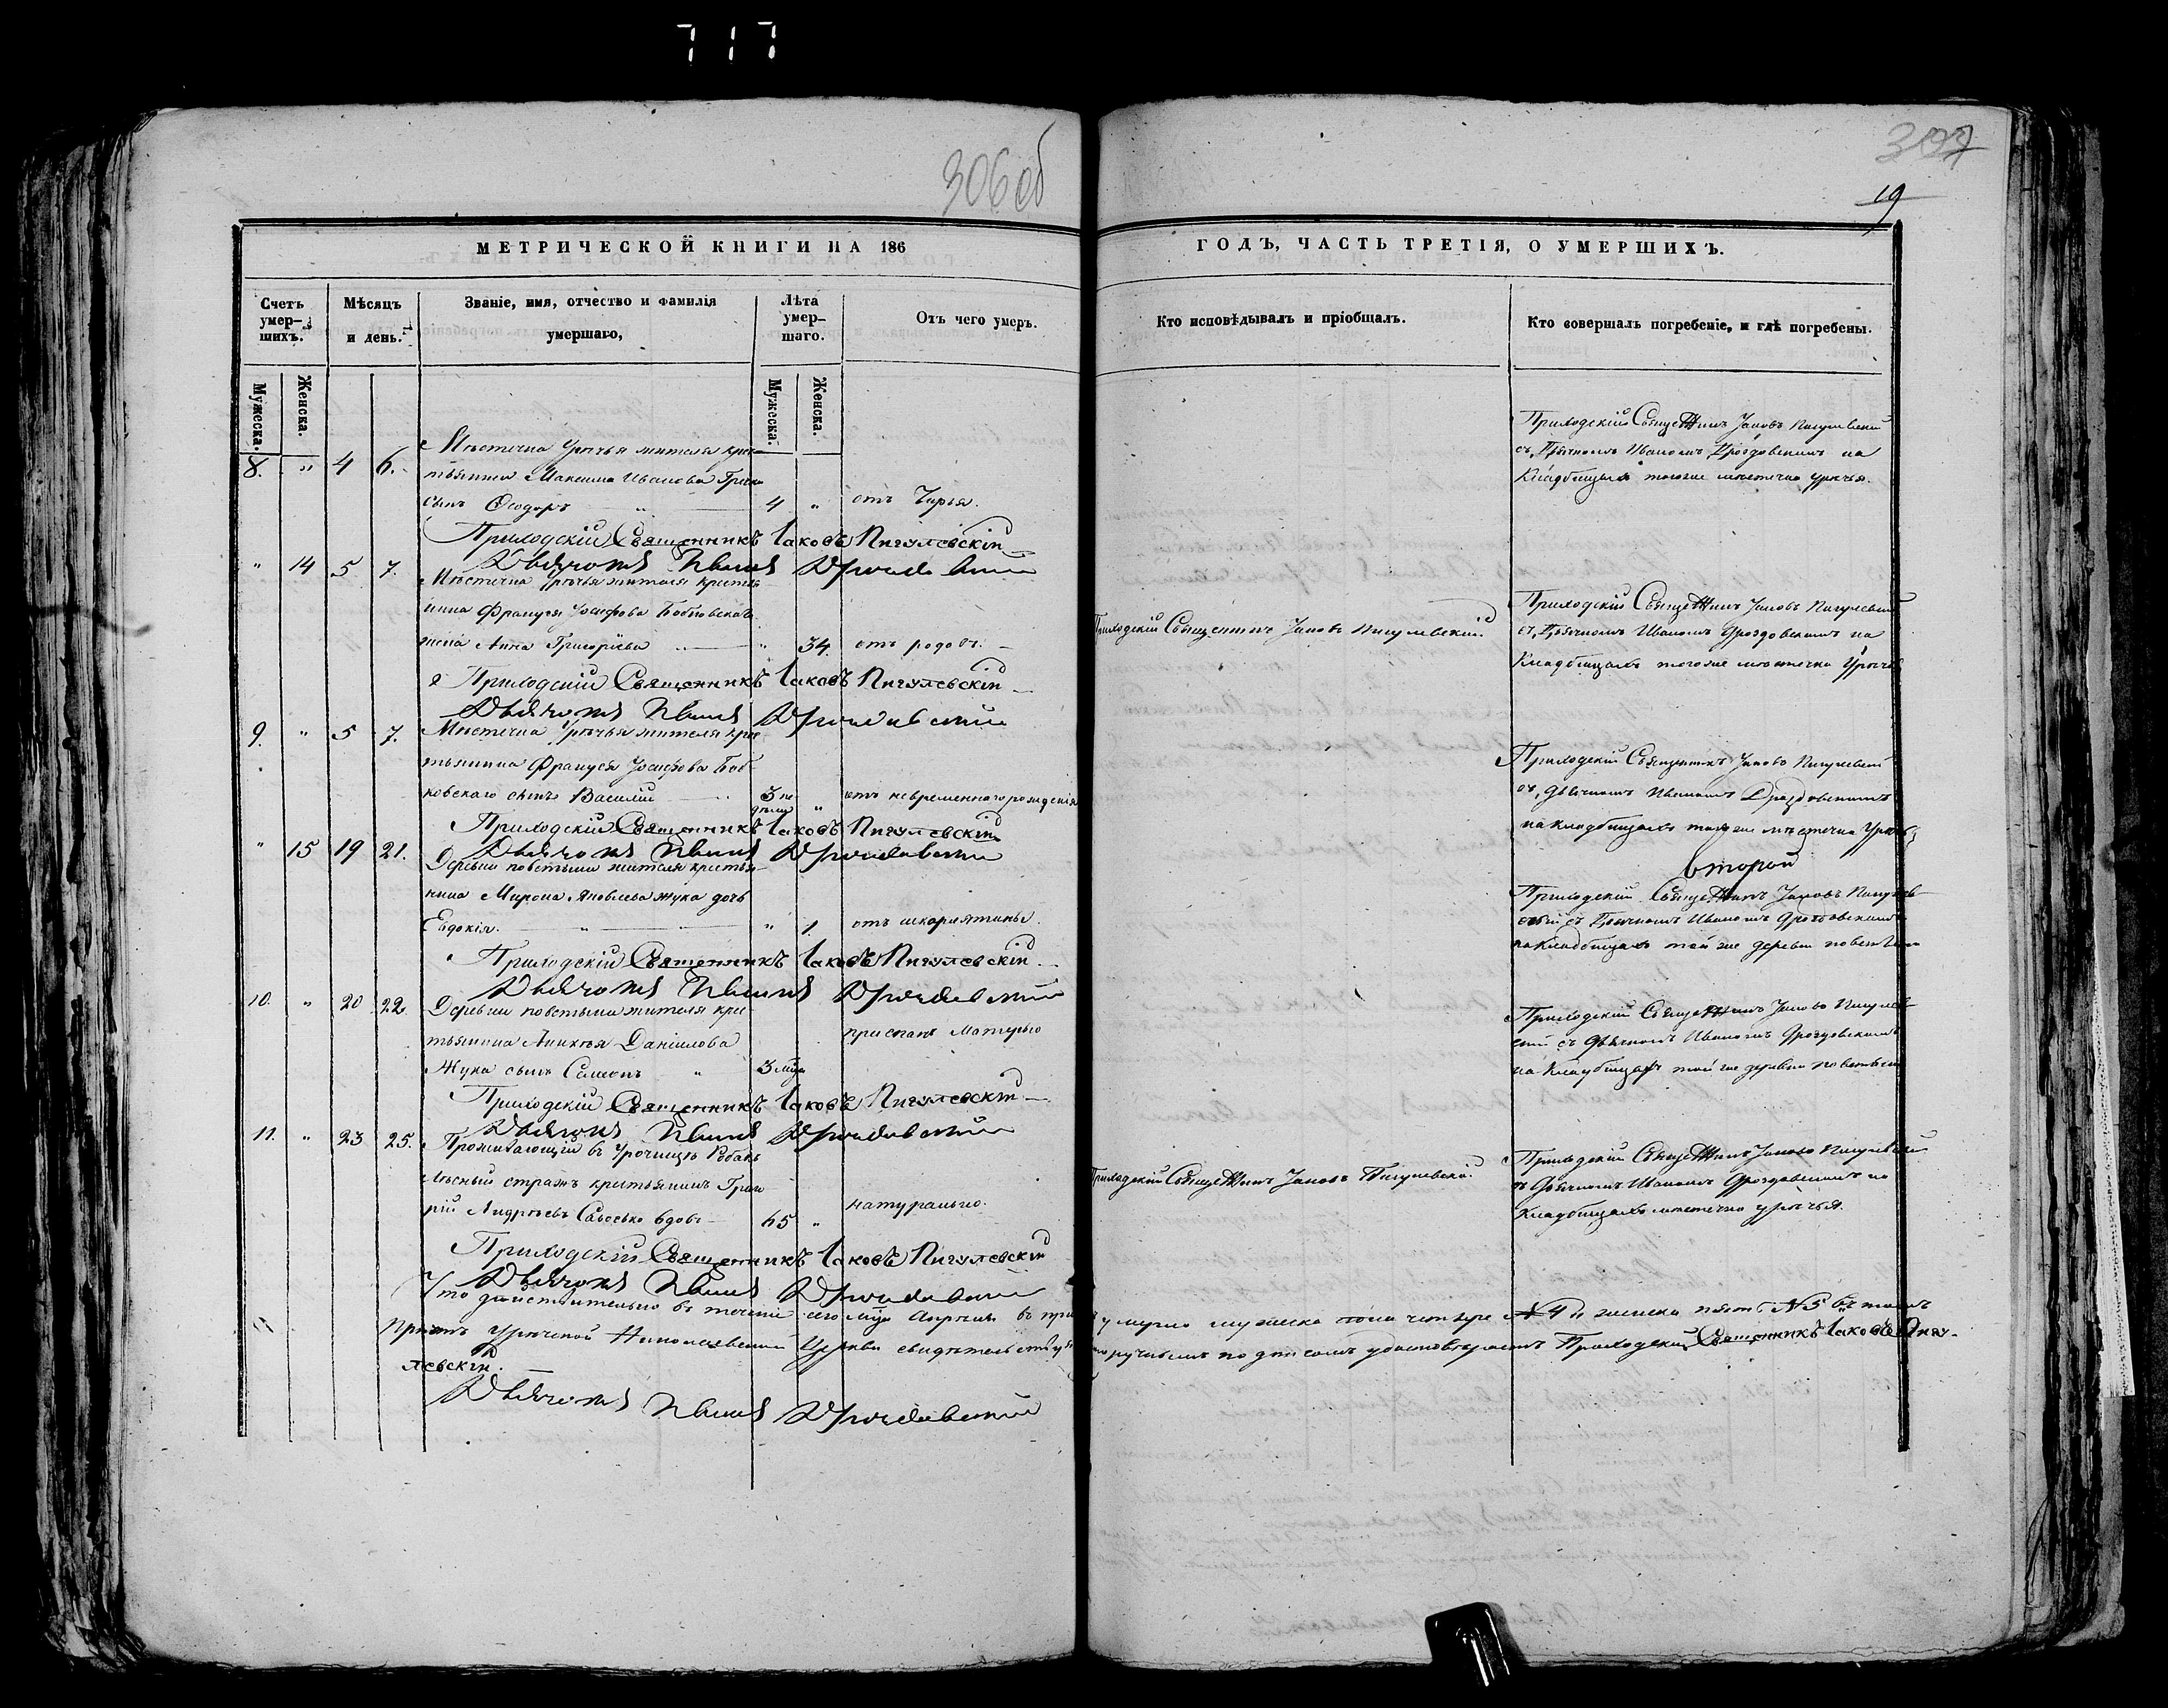 717
306об
307
19
МЕТРИЧЕСКОЙ КНИГИ НА 186
ГОДЪ, ЧАСТЬ ТРЕТІЯ, О УМЕРШИХЪ.
Счетъ умер-шихъ.
Мѣсяцъ и день.
Званіе, имя, отчество и фамилія умершаго,
Лѣта умер-шаго.
Отъ чего умеръ.
Кто исповѣдывалъ и пріобщалъ.
Кто совершалъ погребеніе, и гдѣ погребены.
Мужеска.
Женска.
Мужеска.
Женска.
8. " 4 6.
Мѣстечка Урѣчья жителя крес-
тьянина Максима Иванова
сынъ Ѳеодоръ " 4 " отъ Чирья.
Приходскій Священникъ Іаковъ
съ Дьячкомъ Иваномъ Дроздовскимъ на
Кладбищахъ тогоже мѣстечка Урѣчья.
Приходскій Священникъ Іаковъ Пигулевскій
Дьячокъ Иванъ Дроздовскій
" 14 5 7.
Мѣстечка Урѣчья жителя крестья-
нина Француся Іосифова Бобковскаго
жена Анна Григоріева " 34. отъ родовъ.
Приходскій Священникъ Іаковъ Пигулевскій
Приходскій Священникъ Іаковъ Пигулевскій
съ Дьячкомъ Иваномъ Дроздовскимъ на
Кладбищахъ тогоже мѣстечка Урѣчья
Приходскій Священникъ Іаковъ Пигулевскій
Дьячокъ Иванъ Дроздовскій
9. " 5 7.
Мѣстечка Урѣчья жителя крес-
тьянина Француся Іосифова Боб-
ковскаго сынъ Василій 3 не-дѣли " отъ невременнаго рожденія
Приходскій Священникъ Іаковъ Пигулевскій
съ Дьячкомъ Иваномъ Дроздовскимъ
на кладбищахъ тогоже мѣстечка
Приходскій Священникъ Іаковъ Пигулевскій
Дьячокъ Иванъ Дроздовскій
второй
" 15 19 21.
Деревни повстыни жителя крестья-
нина Мирона Яковлева Жука дочь
Евдокія. " " 1. отъ шкарлятины.
Приходскій Священникъ Іаковъ Пигулев-
скій съ Дьячкомъ Иваномъ Дроздовскимъ
на Кладбищахъ той же деревни
Приходскій Священникъ Іаковъ Пигулевскій
Дьячокъ Иванъ Дроздовскій
10. " 20 22.
Деревни повстыни жителя крес-
тьянина Даніилова приспанъ Матерью
Жука сынъ Симеонъ " 3 мца
Приходскій Священникъ Іаковъ Пигулев-
скій съ Дьячкомъ Иваномъ Дроздовскимъ
на Кладбищахъ той же деревни
Приходскій Священникъ Іаковъ Пигулевскій
Дьячокъ Иванъ Дроздовскій
11. " 23 25.
Проживающій въ Урочищѣ
Лѣсный стражъ крестьянинъ Григо-
рій Андреевъ вдовъ 65 " натурально.
Приходскій Священникъ Іаковъ Пигулевскій
Приходскій Священникъ Іаковъ Пигулевскій
съ Дьячкомъ Иваномъ Дроздовскимъ на
Кладбищахъ мѣстечка урѣчья.
Приходскій Священникъ Іаковъ Пигулевскій
Дьячокъ Иванъ Дроздовскій
Что дѣйствительно въ теченіе сего мца Апрѣля въ умерло мужеска пола четыре №4 и женска №5 въ томъ
Причтъ Урѣчской Николаевской Церкви подписомъ Приходскій Священникъ Іаковъ Пигу-
левскій.
Дьячокъ Иванъ Дроздовскій